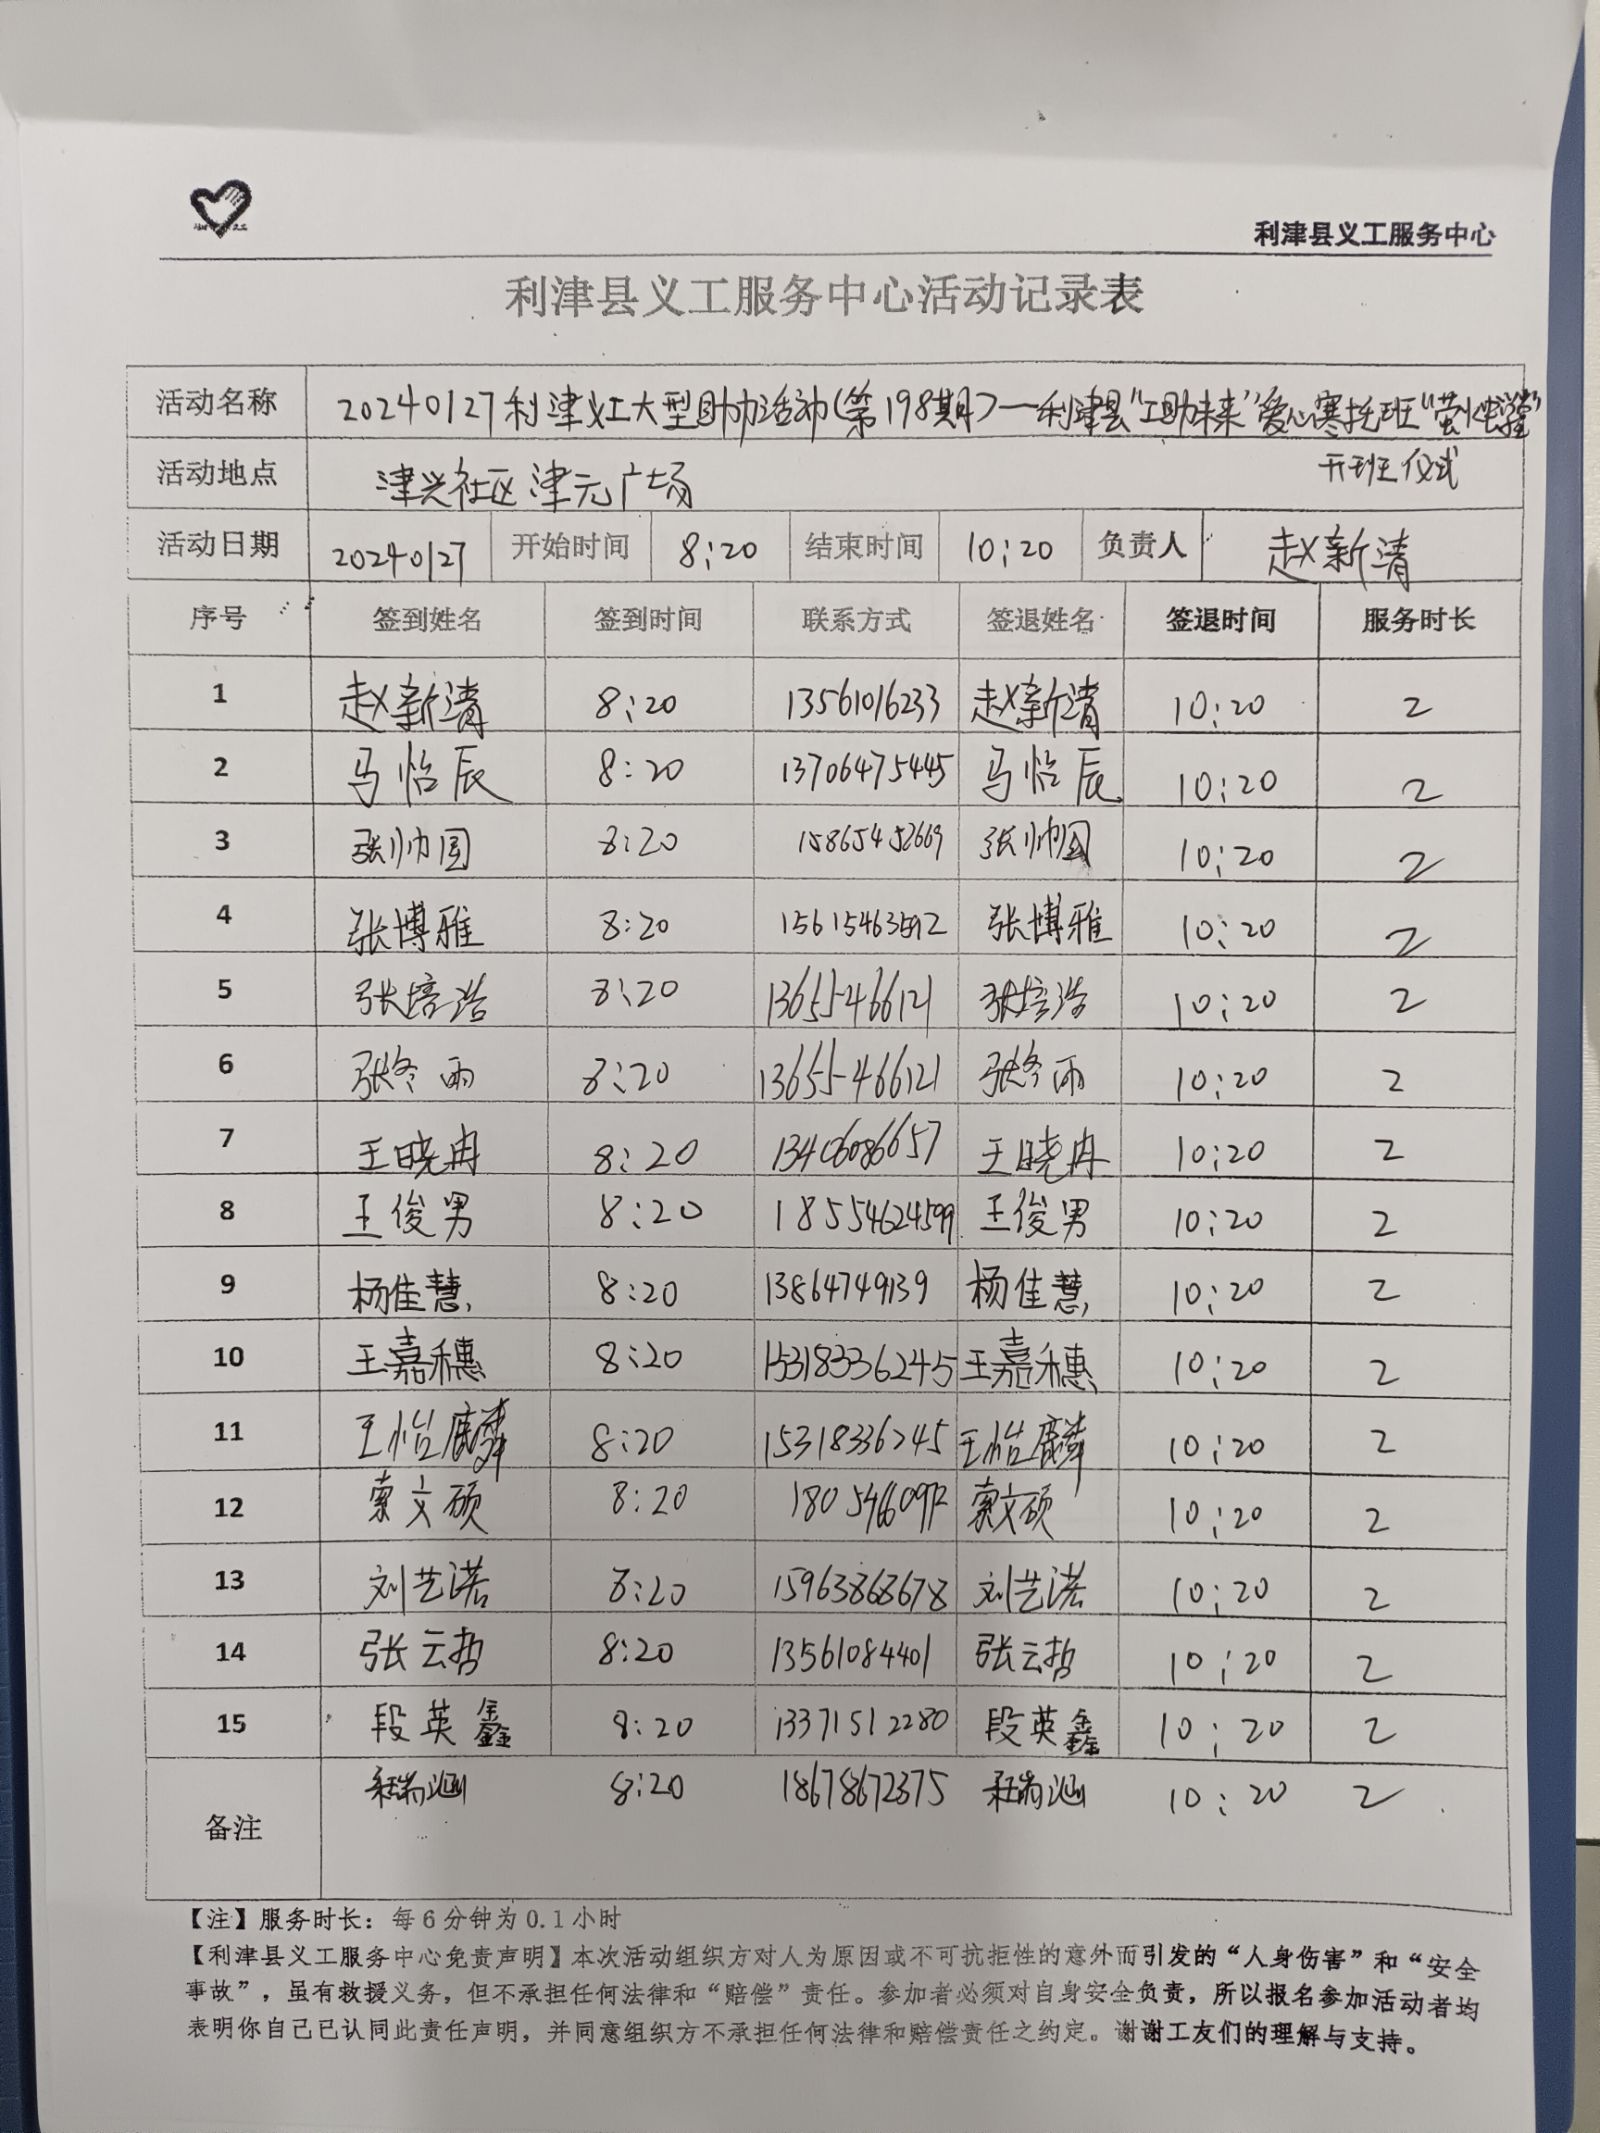 利津县义工服务中心
利津县义工服务中心活动记录表
活动名称 20240127利津义工大型助力活动(第198期)—利津县"工助未来"爱心寒托班"萤火虫学堂"
开班仪式
活动地点 津兴社区津元广场
活动日期 20240127 开始时间 8:20 结束时间 10:20 负责人 赵新清
序号 签到姓名 签到时间 联系方式 签退姓名 签退时间 服务时长
1 赵新清 8:20 13561016233 赵新清 10:20 2
2 马怡辰 8:20 13706475445 马怡辰 10:20 2
3 张帅国 8:20 15865452669 张帅国 10:20 2
4 张博雅 8:20 张博雅 10:20 2
5 张培浩 8:20 13655466121 张培浩 10:20 2
6 张冬雨 8:20 13655466121 张冬雨 10:20 2
7 王晓冉 8:20 13406086657 王晓冉 10:20 2
8 王俊男 8:20 18554624599 王俊男 10:20 2
9 杨佳慧 8:20 13864749139 杨佳慧 10:20 2
10 王嘉穗 8:20 15318336245 王嘉穗 10:20 2
11 王怡麟 8:20 15318336245 王怡麟 10:20 2
12 索文硕 8:20 索文硕 10:20 2
13 刘艺诺 8:20 15963868678 刘艺诺 10:20 2
14 张云哲 8:20 13561084401 张云哲 10:20 2
15 段英鑫 8:20 13371512280 段英鑫 10:20 2
备注 8:20 18678672375 10:20 2
【注】服务时长：每6分钟为0.1小时
【利津县义工服务中心免责声明】本次活动组织方对人为原因或不可抗拒性的意外而引发的“人身伤害”和“安全
事故”，虽有救援义务，但不承担任何法律和“赔偿”责任。参加者必须对自身安全负责，所以报名参加活动者均
表明你自己已认同此责任声明，并同意组织方不承担任何法律和赔偿责任之约定。谢谢工友们的理解与支持。